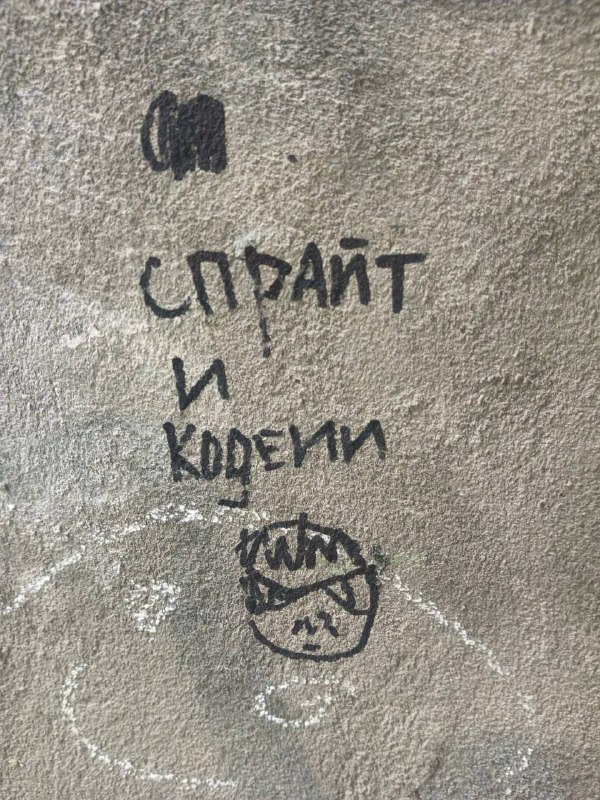 СПРАЙТ
И
КОДЕИИ